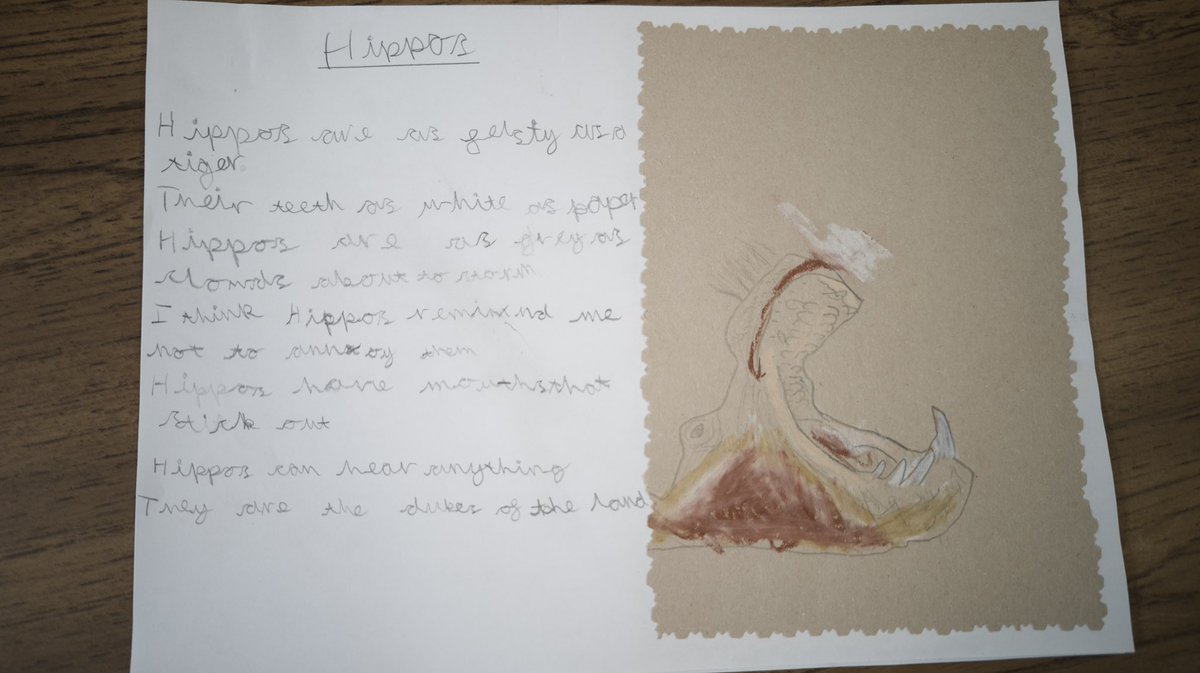 Hippos
Hippos are as geisty as a
tiger
Their teeth as white as paper
Hippos are as grey as
clouds about to storm
I think Hippos remind me
not to annoy them
Hippos have mouths that
stick out
Hippos can hear anything
They are the dukes of the land